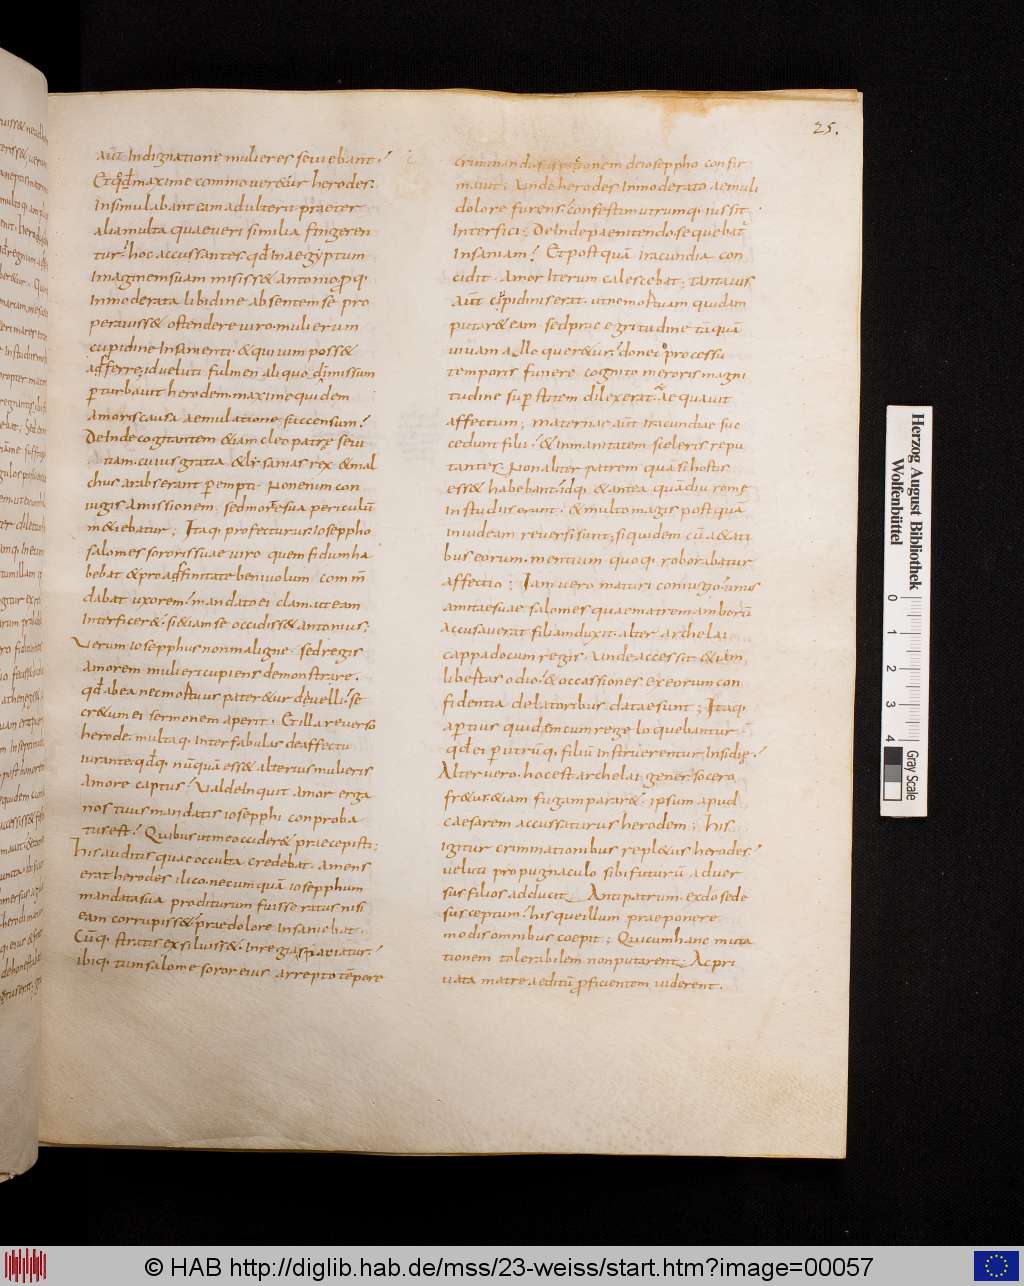 25.
aut Indignatione mulieres seviebant;
Et qđ maxime commoveretur herodes:
Insimulabant eam adulterii praeter
aliamulta quae veri similia fingeren
tur; hoc accussantes qđ In aegyptum
Imaginem suam misisset antonio proq;
Inmoderata libidine absentem se pro
pervisset ostendere viro mulierum
cupidine Insanienti. & qui vim posset
adferre; id veluti fulmen aliquo dimissum
perturbavit herodem maxime quidem
Amoris causa aemulatione succensum;
DeInde cogitantem etiam cleopatrę sevi
tiam. cuius gratia & lysanias rex & mal
chus arabs erant perempti. Non enim con
iugis Amissionem. sed mortem sua periculū
metiebatur; Itaq. profecturus ioseppho
salomes sororis suae viro quem fidum ha
bebat & pro adfinitate benivolum com m
dabat uxorem; mandato ei clam. ut eam
Interficeret. si etiam se occidisset antonius;
Verum iosepphus non maligne. sed regis
amorem mulieri cupiens demonstrare.
qđ ab ea nec mortuus pateretur develli; se
cretum ei sermonem aperit. Et illa reverso
herode. multaq. Inter fabulas de affectu
iurante qđq. nūquā esset alterius mulieris
Amore captus; Valde Inquit Amor erga
nos tuus mandatis iosepphi conproba
tus est; Quibus ut me occideret praecepisti;
his auditis quae occulta credebat. amens
erat herodes ilico. necumquā iosepphum
mandata sua proditurum fuisse ratus nisi
eam corrupisset; prae dolore Insaniebat.
Cūq. stratis exsiluisset. In regia spatiatur;
ibiq. tum salome soror eius arrepto tēpore
criminandi suspitionem de ioseppho confir
mavit; Unde herodes Inmoderato aemuli
dolore furens; confestim utrumq. iussit
Interfici; DeInde paenitendo. sequebat
Insaniam; Et postquā Iracundia con
cidit. Amor Iterum calescebat; tanta vis
Aut cupidinis erat. ut ne mortuam quidam
putaret eam sed prae egritudine tāquā
vivam alloqueretur; donec processu
temporis funere cognito meroris magni
tudine superstitem dilexerat. Ac quavit
affectum; maternae aut iracundiae suc
cedunt filii; & inmanitatem sceleris repu
tantes Non aliter patrem quā si hostis
esset habebant; idq. & antea quādiu romę
In studiis erant. & multo magis postqua
In iudeam reversi sunt; siquidem cū aetati
bus eorum. mentium quoq. roborabatur
affectio; Iam vero maturi coniugio; unus
amitae suae salomes quae matrem amborū
Accusaverat filiam duxit. alter archelai
cappadocum regis. Unde accessit etiam
libertas odio; & occassiones ex eorum con
fidentia delatoribus datae sunt; Itaq.
apertius quidem cum rege loquebantur
qđ ei per utrūq. filiū Instruerentur Insidię;
Alter vero. hoc est archelai gener. socero
fretus etiam fugam pararet. ipsum apud
caesarem accussaturus herodem; his
igitur criminationibus repletus herodes;
veluti propugnaculo sibi futurū adver
sus filios adducit Antipatrum. ex doside
susceptum; hisque illum praeponere
modis omnibus coepit; Qui cum hanc muta
tionem tolerabilem non putarent; Ac pri
vata matre aeditū proficientem viderent.
Herzog August Bibliothek
Wolfenbüttel
0 1 2 3 4
Gray Scale
© HAB http://diglib.hab.de/mss/23-weiss/start.htm?image=00057